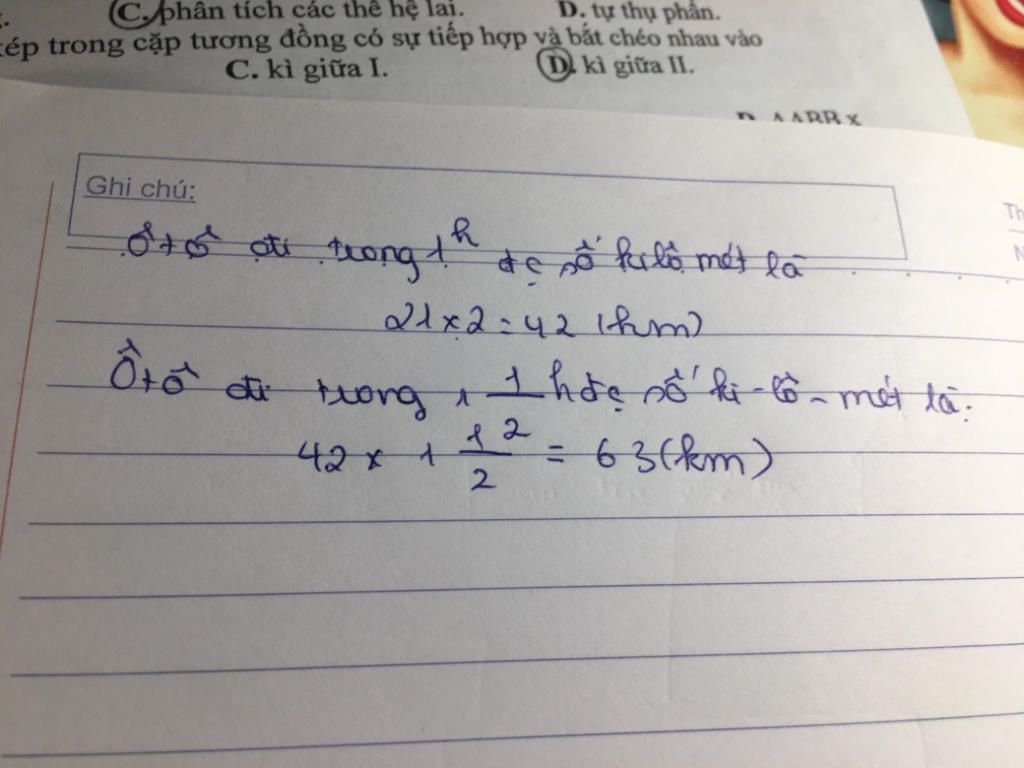 C. phân tích các thế hệ lai. D. tự thụ phấn.
kép trong cặp tương đồng có sự tiếp hợp và bắt chéo nhau vào
C. kì giữa I. D. kì giữa II.
D. AABB x
Ghi chú:
Ô tô đi trong 1h đc số ki lô mét là
21 x 2 = 42 (km)
Ô tô đi trong 1 1/2 h đc số ki - lô - mét là:
42 x 1 1/2 = 63 (km)